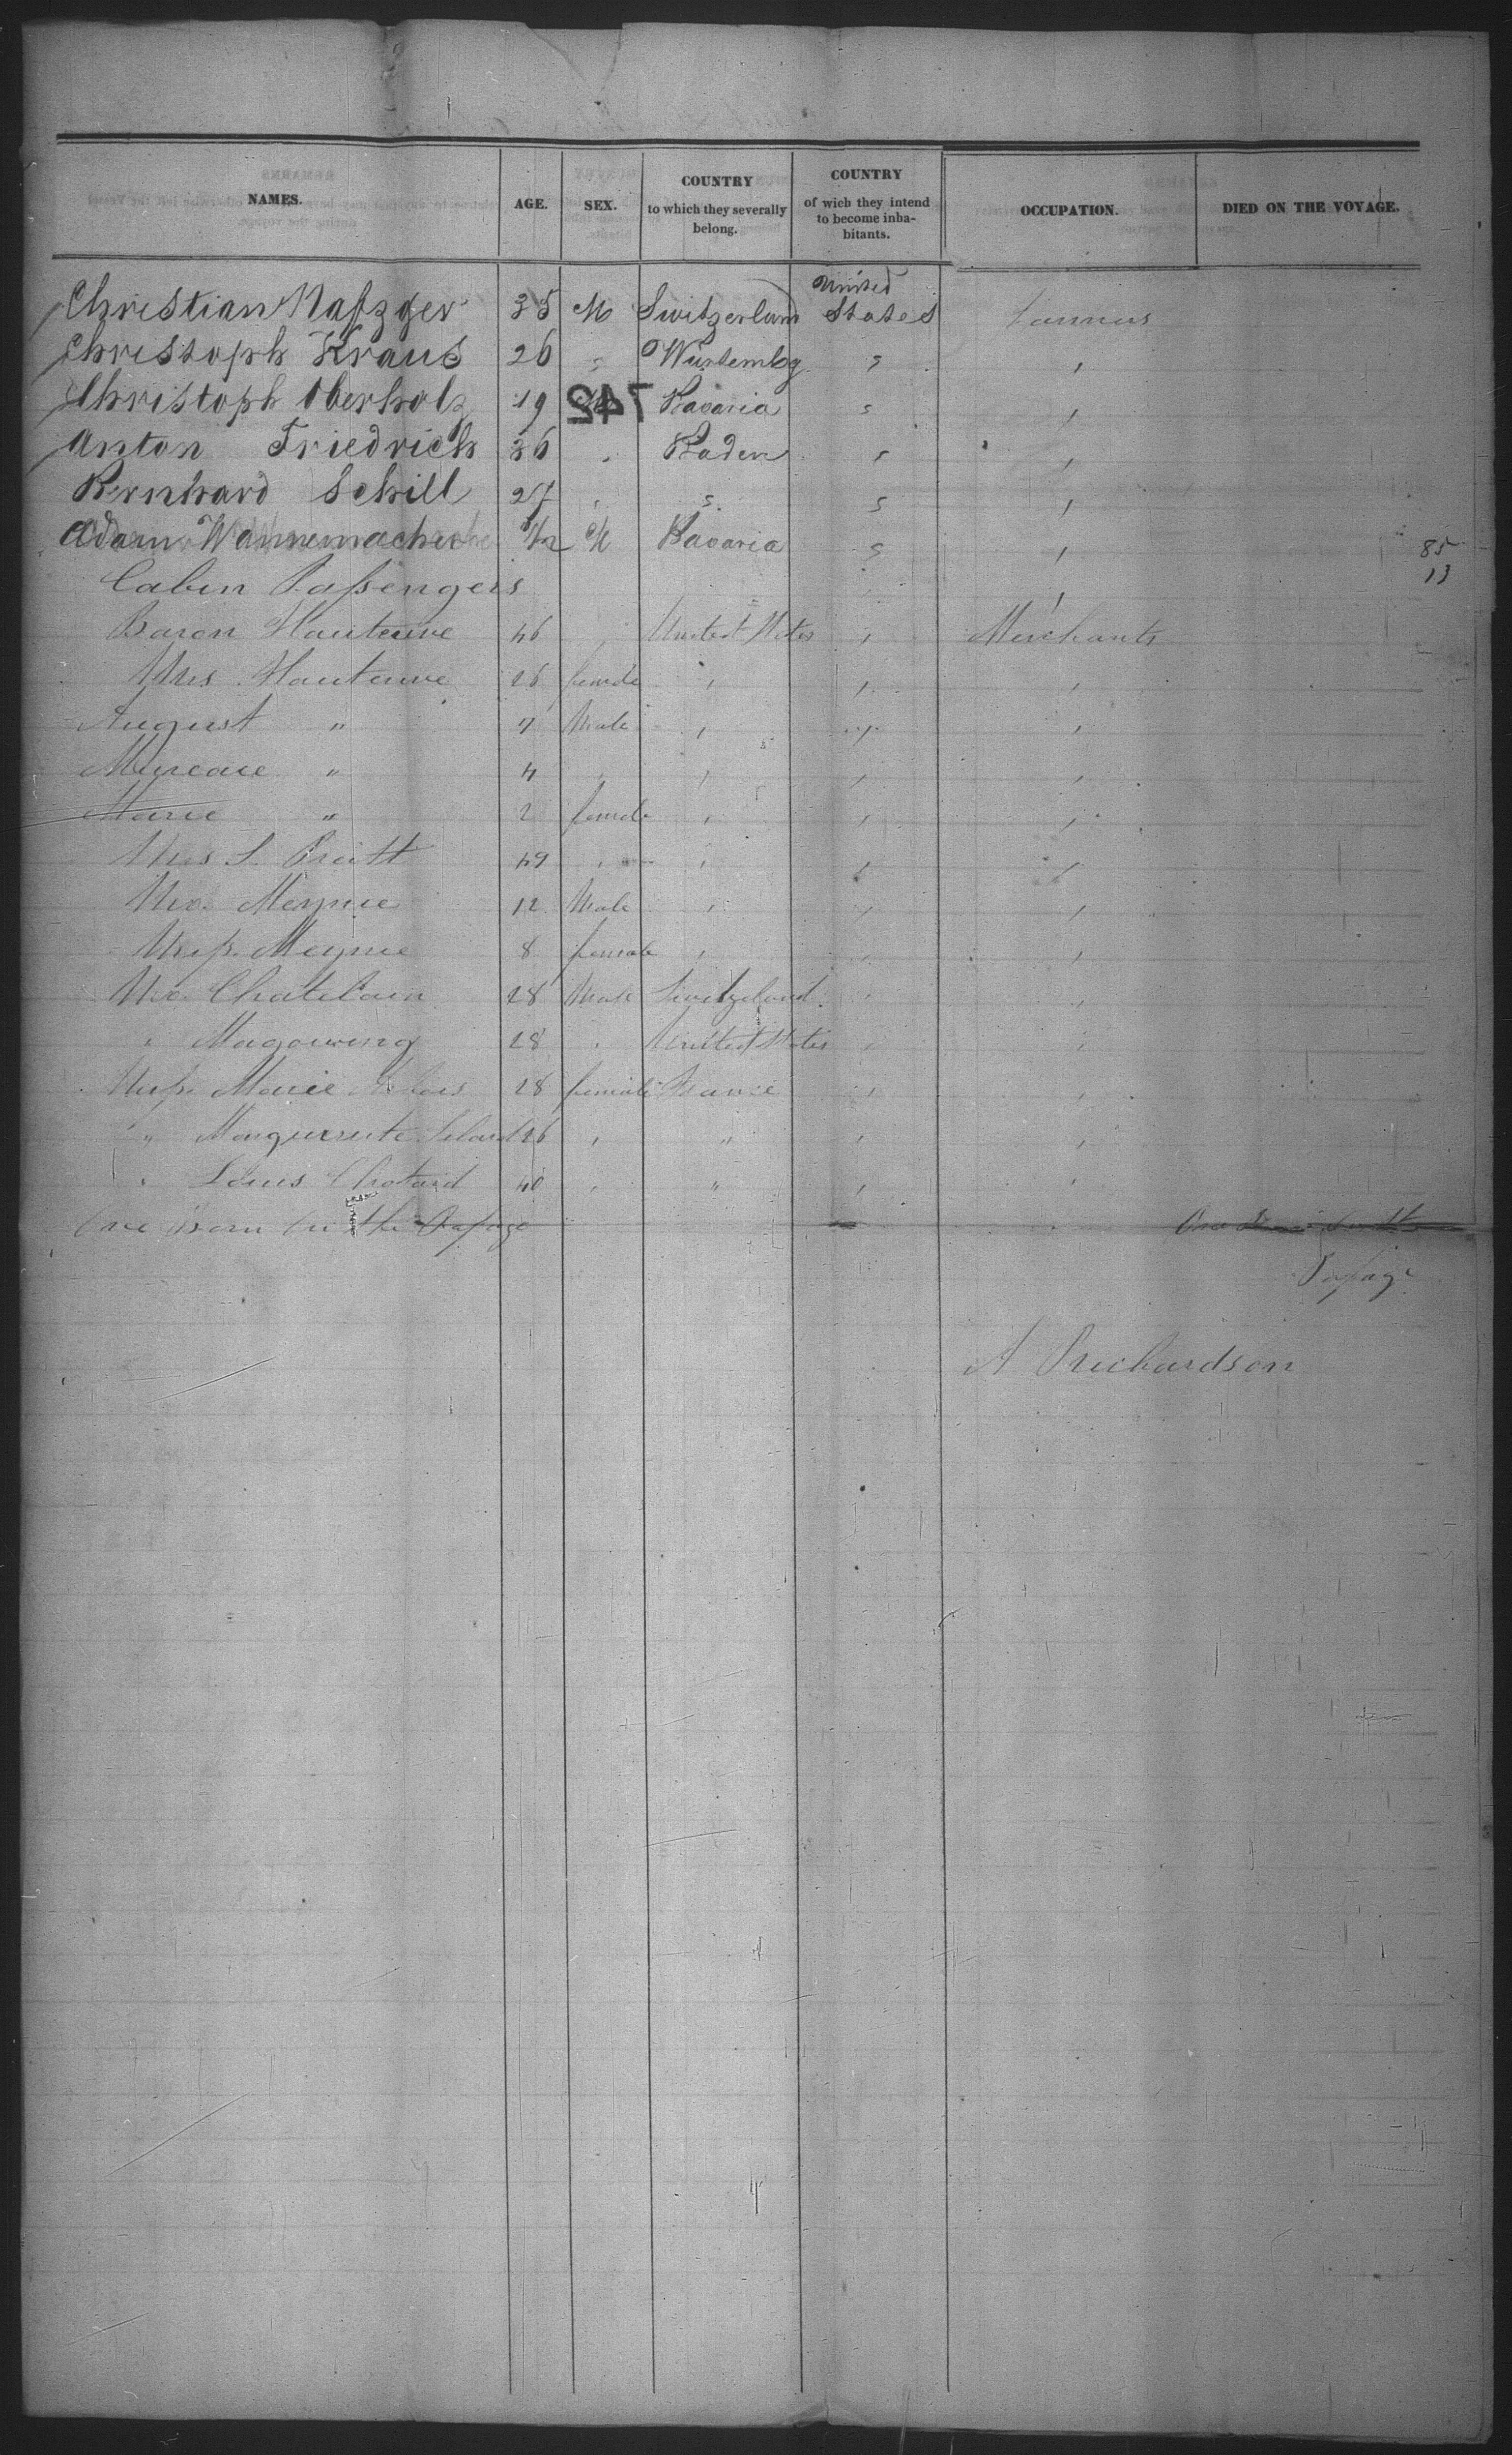 NAMES. AGE. SEX. COUNTRY to which they severally belong. COUNTRY of wich they intend to become inhabitants. OCCUPATION. DIED ON THE VOYAGE.
Christian Nafzger 35 M Switzerland United States Farmers
Christoph Kraus 26 " Würtembg " "
Christoph Oberholz 19 Bavaria " "
742
Anton Friedrich 36 " Baden " "
Bernhard Schill 27 " " " "
Adam Wannemacher M Bavaria " "
85
13
Cabin Passengers "
Baron Hauterive 46 " United States " Merchants
Mrs Hauterive 28 female " " "
August " 7 Male " " "
" 4 " " " "
Marie " 2 female " " "
Mrs S. Pratt 49 " " " "
Mr. 12 Male " " "
Miss 8 female " " "
Mr. Chatelain 28 Male Switzeland " "
" Magowing 28 " United States " "
Miss Marie 28 female France " "
" Marguerite 26 " " " "
" Louis Chotard 40 " " " "
One Born On The Passage
Passage
A Richardson